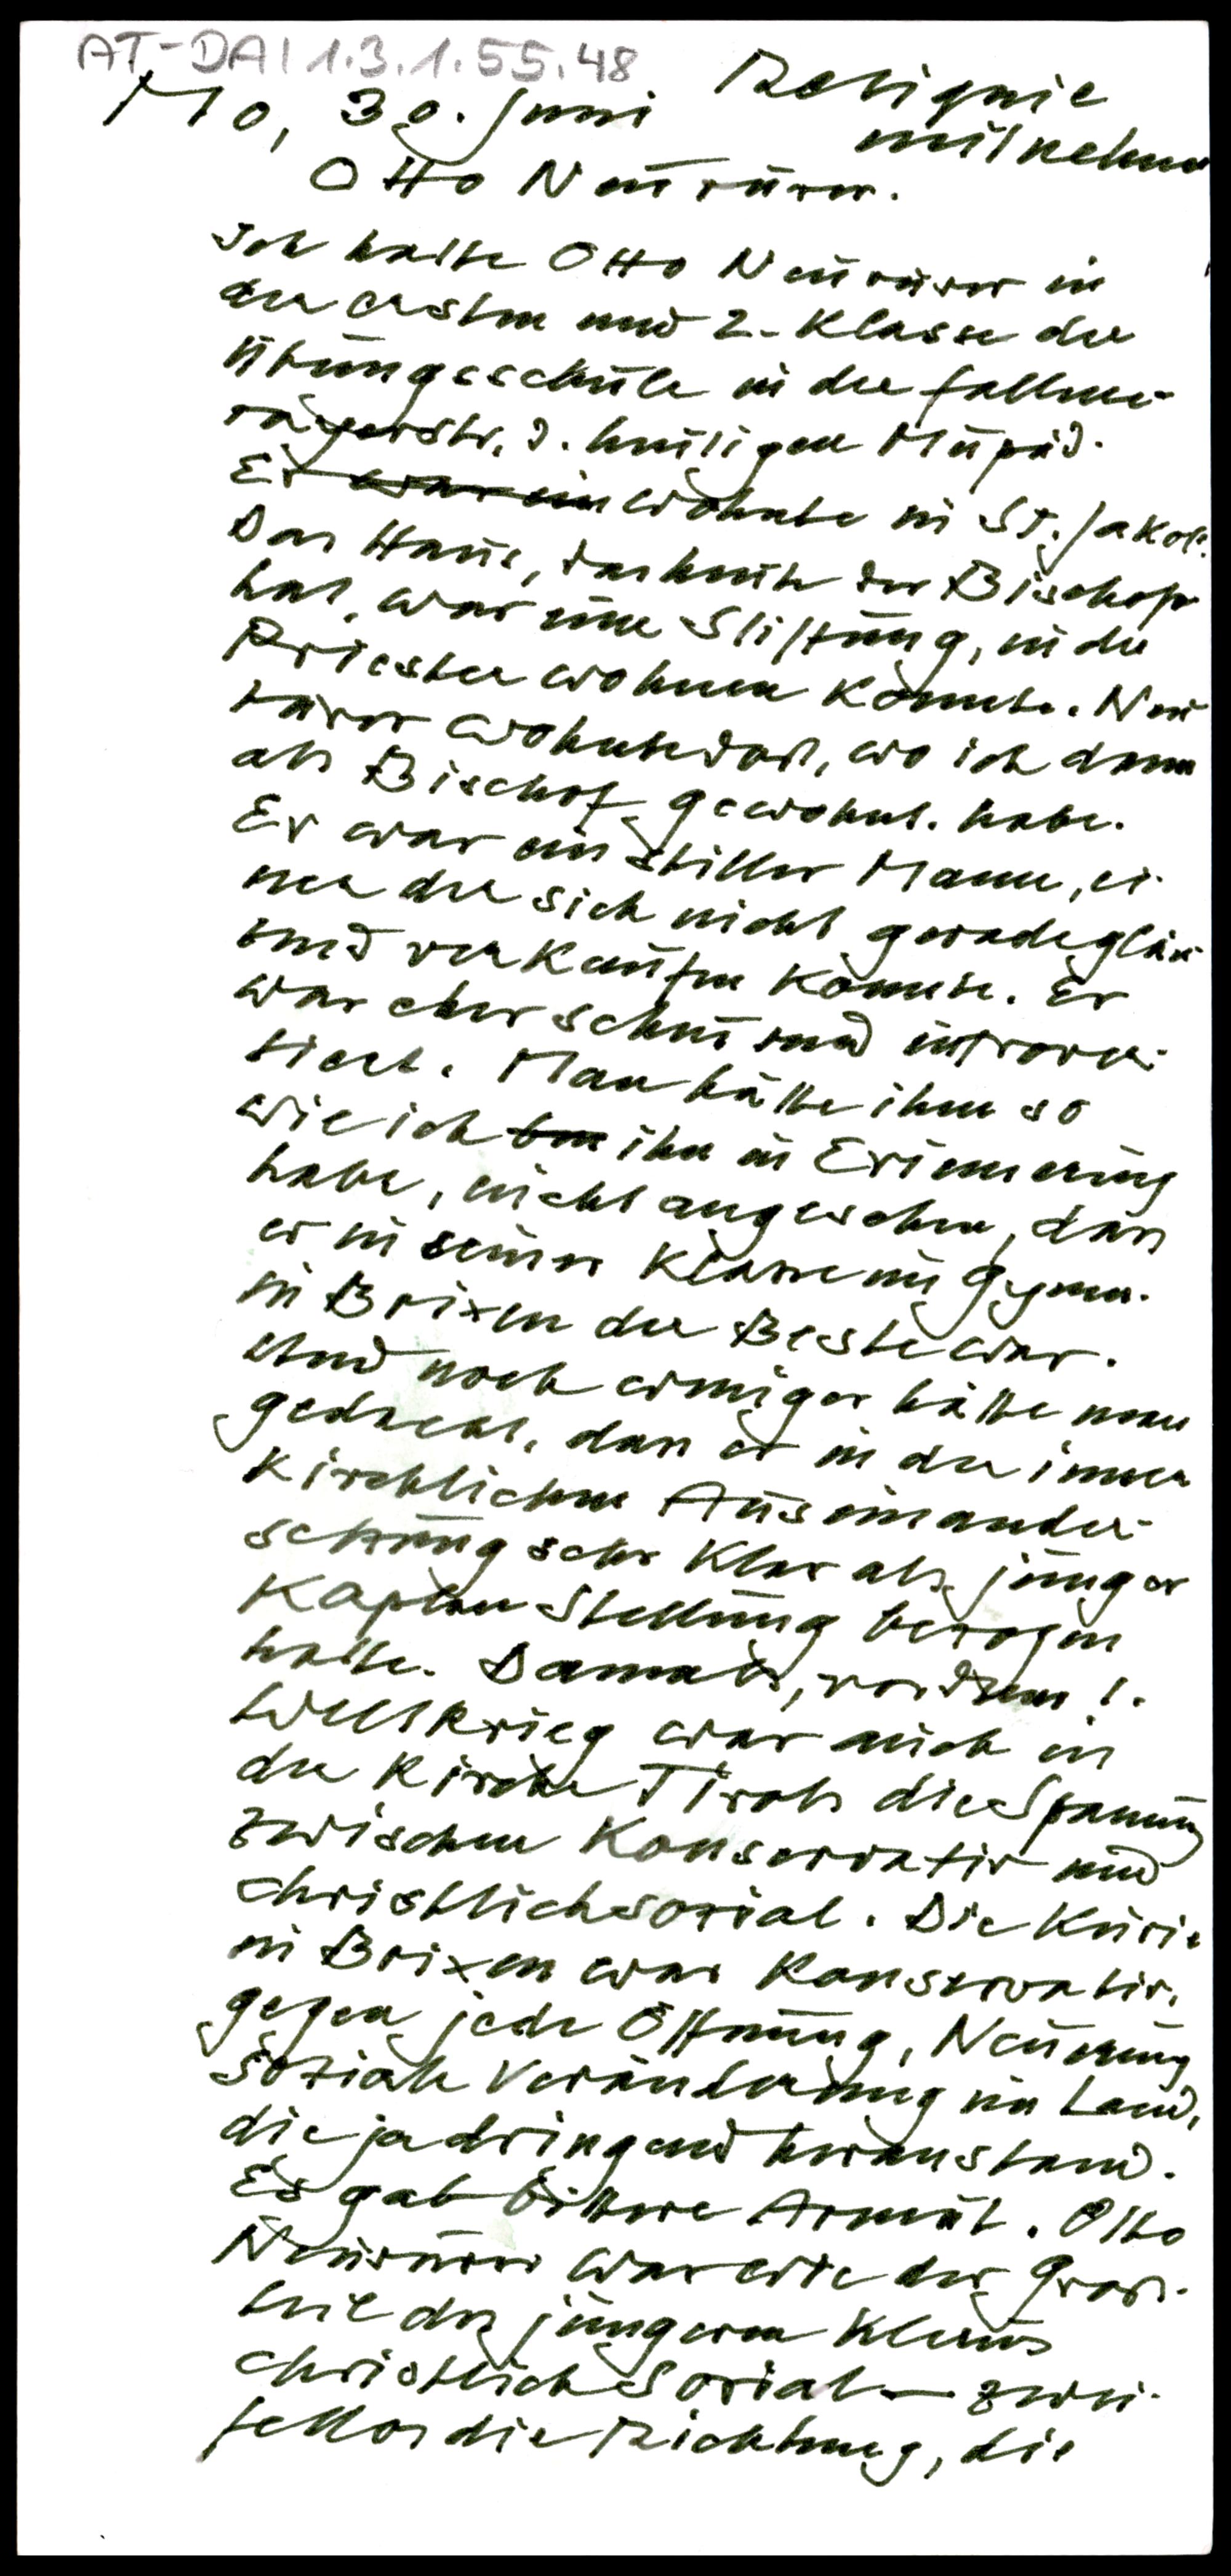 AT-DAI 1.3.1.55.48
Reliquie
Mo, 30. Juni
mitnehmen
Otto Neururer.
Ich hatte Otto Neururer in
der ersten und 2. Klasse der
Übungsschule in der Fallme-
rayerstr., d. heutigen Mupäd.
Er war ein wohnte in St. Jakob.
Das Haus, das heute der Bischof
hat, war eine Stiftung, in der
Priester wohnen konnte. Neu
rurer wohnte dort, wo ich dann
als Bischof gewohnt habe.
Er war ein stiller Mann, ei-
ner der sich nicht gerade glän-
zend verkaufen konnte. Er
war eher scheu und introver-
tiert. Man hätte ihm so
wie ich ihn in Erinnerung
habe, nicht angesehen, dass
er in seiner Klasse im Gymn.
in Brixen der Beste war.
Und noch weniger hätte man
gedacht, dass er in der inner
kirchlichen Auseinander-
setzung sehr klar als junger
Kaplan Stellung bezogen
hatte. Damals, vor dem 1.
Weltkrieg war auch in
der Kirche Tirols die Spannung
zwischen Konservativ und
christlichsozial. Die Kurie
in Brixen war konservativ,
gegen jede Öffnung, Neuerung
soziale Veränderung im Land,
die ja dringend heranstand.
Es gab bittere Armut. Otto
Neururer war wie der Gross-
teil des jüngeren Klerus
christlich Sozial – zwei-
fellos die Richtung, die